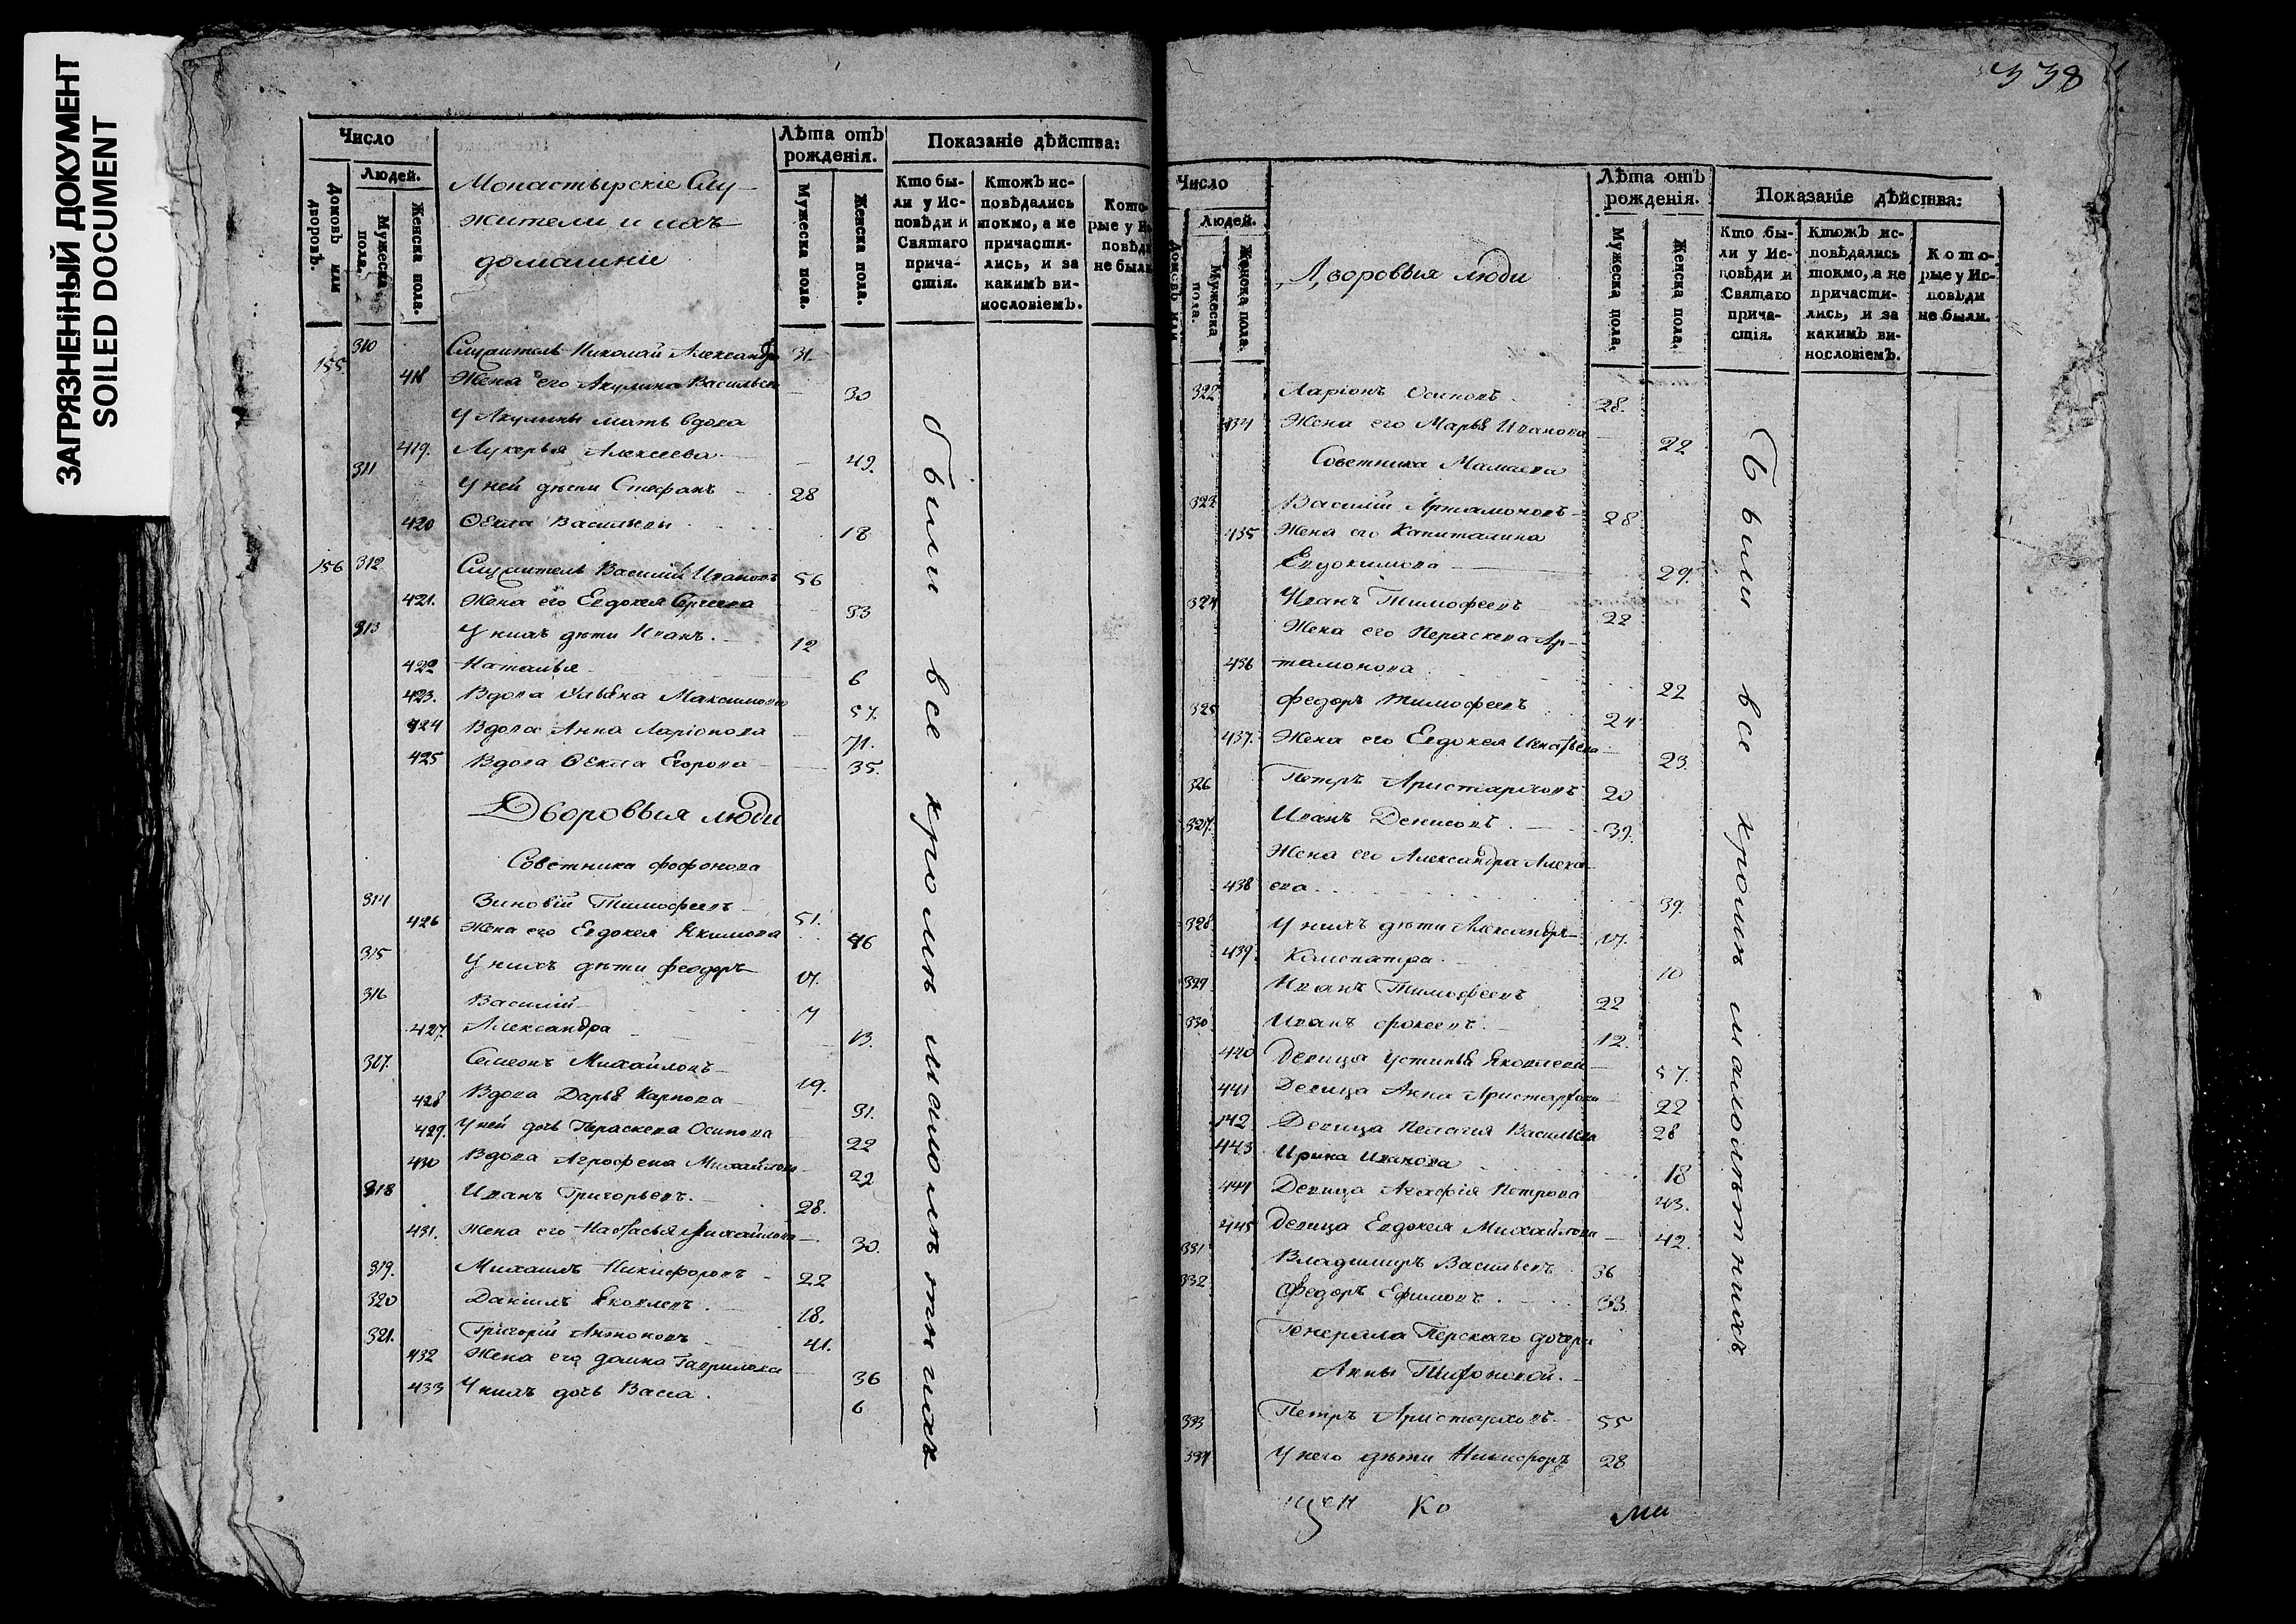 ЗАГРЯЗНЕННЫЙ ДОКУМЕНТ
SOILED DOCUMENT
Число
Людей.
Домовъ или дворовъ.
Мужеска пола.
Женска пола.
Монастырскіе Слу-
жители и ихъ
домашніе
Лѣта отъ рожденія.
Мужеска пола.
Женска пола.
Показаніе дѣйства:
Кто бы-
ли у Ис-
повѣди и
Святаго
прича-
стія.
Ктожъ ис-
повѣдались
токмо, а не
причасти-
лись, и за
какимъ ви-
нословіемъ.
Кото-
рые у Ис
повѣди
не были
155 310 Служитель Николай Александро 31
418 Жена его Акулина Васильева 30
У Акулины мать вдова
419. Лукерья Алексеева 49.
311 У ней дети Стефанъ 28
420 Ѳекла Васильевы 18
156 312 Служитель Василій Ивановъ 56
421. Жена его Евдокея Сергеева 33
313 У нихъ дети Иванъ. 12
422 Наталья 6
423. Вдова Ульяна Максимова 57.
424 Вдова Анна Ларіонова 71.
425 Вдова Ѳекла Егорова 35.
Дворовыя люди
Советника Фофонова
314 Зиновій Тимофеевъ 51.
426 Жена его Евдокея Якимова 46
315 У нихъ дети Феодоръ 17.
316 Василій 7
427. Александра 13.
317. Симеонъ Михайловъ 19.
428 Вдова Дарья Карпова 31.
429. У ней дочь Параскева Осипова 22
430 Вдова Агрофена Михайлова 22
318 Иванъ Григорьевъ. 28.
431. Жена его Настасья Михайлова 30.
319. Михаилъ Никифоровъ 22
320 Даніилъ Яковлевъ. 18.
321. Григорій Антоновъ 41.
432 Жена его Домна Гаврилова 36
433 У нихъ дочь Васса. 6
были все кроме малолетнихъ
338
Число
Людей.
Домовъ или
Мужеска пола.
Женска пола.
Дворовыя люди
Лѣта отъ рожденія.
Мужеска пола.
Женска пола.
Показаніе дѣйства:
Кто бы-
ли у Ис-
повѣди и
Святаго
прича-
стія.
Ктожъ ис-
повѣдались
токмо, а не
причасти-
лись, и за
какимъ ви-
нословіемъ.
Кото-
рые у Ис-
повѣди
не были.
322 Ларіонъ Осиповъ 28.
434 Жена его Марья Иванова 22
Советника Мамаева
323 Василій Артамоновъ 28
435 Жена его Капиталина
Евдокимова 29.
324 Иванъ Тимофеевъ 22
Жена его Пераскева Ар-
436 тамонова 22
325 Федоръ Тимофеевъ 24
437. Жена его Евдокея Игнатьева 23.
326 Петръ Аристарховъ 20
327. Иванъ Денисовъ. 39.
Жена его Александра Алекс
438 ева 39.
328 У нихъ дети Александръ 17.
439. Клеопатра. 10
329 Иванъ Тимофеевъ 22
330 Иванъ Фокеевъ. 12.
440 Девица Устинья Яковлева 57.
441 Девица Анна Аристархова 22
442 Девица Пелагия Васильева 28
443 Ирина Иванова 18
444 Девица Агафія Петрова 43.
445 Девица Евдокея Михайлова 42.
331 Владимиръ Васильевъ 36
332 Федоръ Ефимовъ. 33.
Генерала Перскаго дочери
Анны
333 Петръ Аристарховъ. 55
334 У него дети Никифоръ 28
были все кроме малолетнихъ
щен ко ми